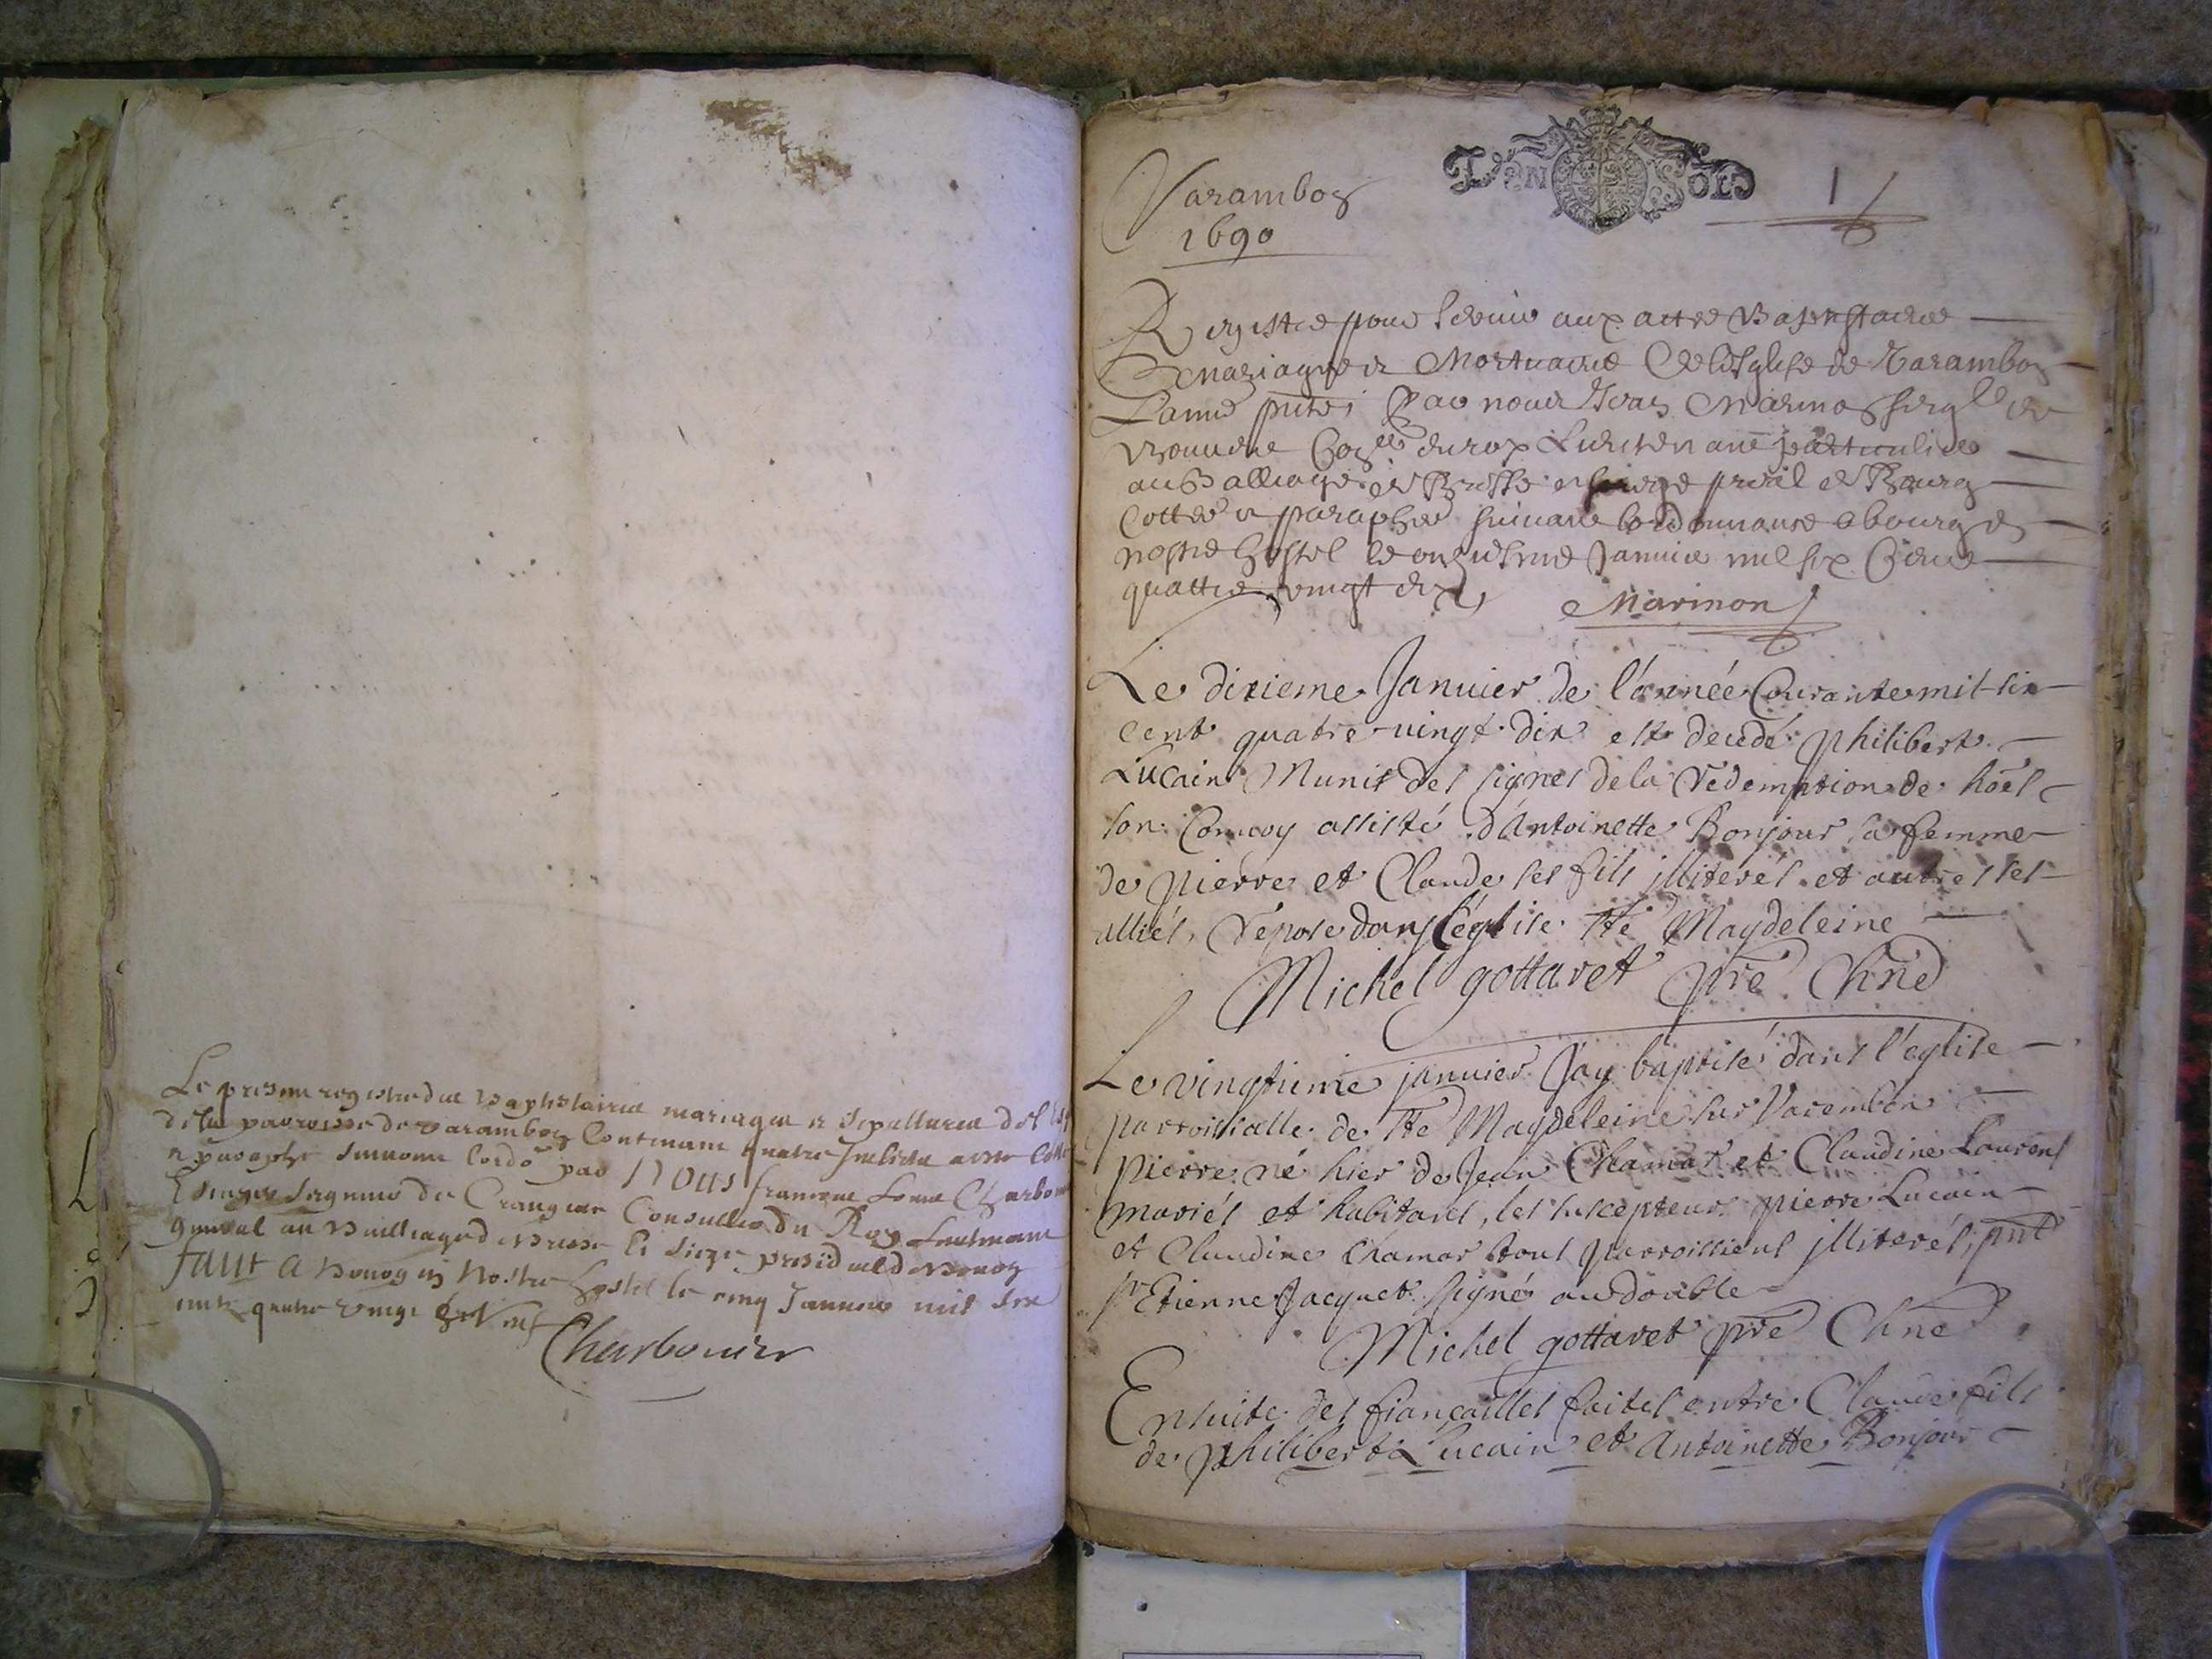 Le present registre des Baptistaires mariages et sepultures de
de la parroisse de varambon Contenant quatre
et paraphé suivant lordo par Nous francois Charbon
seigneur de Crangeac Conseiller du Roy Lieutenant
General au Bailliage de Bresse et siege presidial de Bourg
faut A Bourg en Nostre hostel le cinq Janvier mil six
cents quatre vingt
Charbonier
Varambon
1690
DeN SoLs
1
Registre pour servir aux actes Baptistaires
mariages et Mortuaires de lesglise de Varambon
Lannee par nous Marinon de
Conser du roy Lieutenant particulier
au Balliage de Bresse et siege de Bourg
Cotté et paraphé suivant lordonnance a bourg en
nostre hostel le onziesme Janvier mil six Cents
quattre vingt dix,
Marinon
Le dixieme Januier de l'année Courante mil six
cent quatre-uingt-dix est decedé philibert
Lucain Munit des signes de la redemption de
son Conuoy assisté d'Antoinette Bonjour sa femme
de pierre et Claude ses fils illiterés et autres ses
alliés, repose dans l'église Ste Magdeleine
Michel gottaret pre Chne
Le vingtieme januier J'ay baptisé dans l'eglise
parroissialle de Ste Magdeleine sur Varembon
pierre né hier de Jean Chamar et Claudine Laurent
mariés et habitans, les suscepteurs pierre Lucain
et Claudine Chamar tous parroissiens illiterés, pnt
sr Etienne Jacquet signé au double
Michel gottaret pre Chne
Ensuite des fiançailles faites entre Claude fils
de philibert Lucain et Antoinette Bonjour